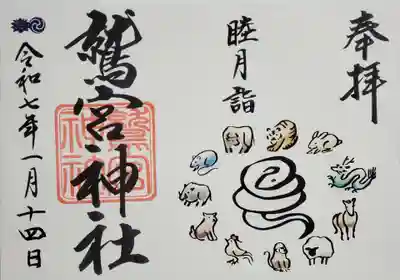 奉拝
睦月詣
鷲宮神社
令和七年一月十四日